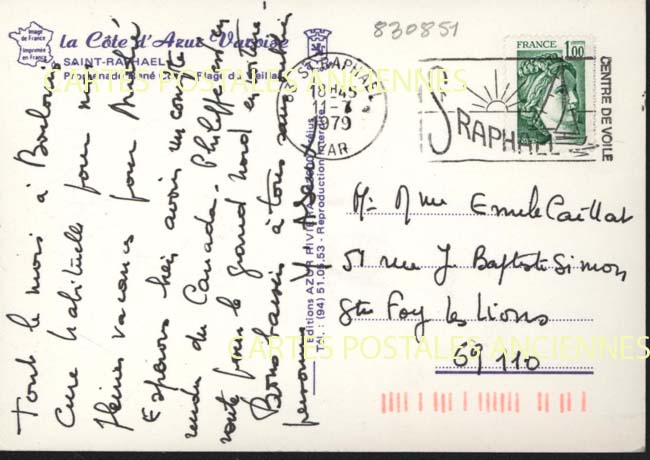 Image de France
Imprimée en France
la Côte d'Azur Varoise
SAINT-RAPHAEL
Promenade René Coty - Plage du Veillat
Tout le mois à Boulouris
Cure habituelle pour moi
pleines vacances pour André
Espérons bien avoir un compte
rendu du Canada. Philippe est en
route pour le grand nord
Bons baisers à tous sans oublier
personne
Editions AZUR RIVIERA
Tél. : (94) 51.05.53 - Reproduction Interdite
830851
83 ST RAPHAEL
18H45
11-7
1979
VAR
ST RAPHAEL
CENTRE DE VOILE
FRANCE
1,00
Mr Mme Emile Caillat
51 rue J. Baptiste Simon
Ste Foy les Lions
69 110
CARTES POSTALES ANCIENNES
CARTES POSTALES ANCIENNES